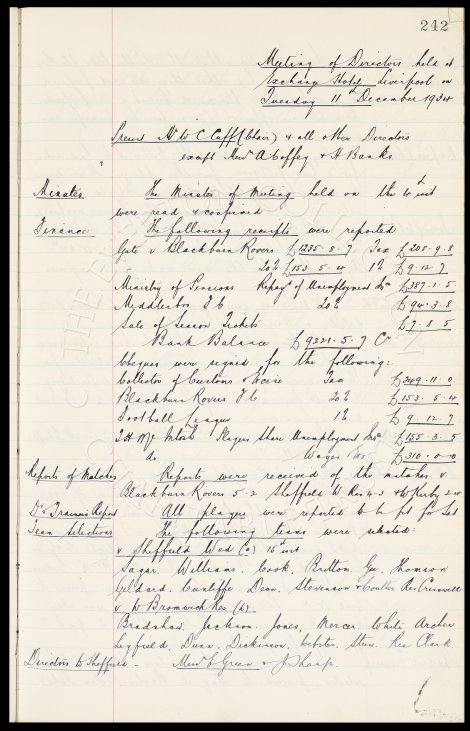 242
Meeting of Directors held at
Exchange Hotel Liverpool on
Tuesday 11th December 1934
Present Mr W C Cuff (Chair) & all other Directors
except Messrs A Coffey & H Banks
Minutes. The Minutes of Meeting held on the 4th inst
were read & confirmed
Finance. The following receipts were reported
Gate v Blackburn Rovers £1235. 8. 7 Tax £208. 9. 8
20% £153. 5. 4 1% £9. 12. 7
Ministry of Pensions Repayt of Unemployment Ins £387. 1. 5
Middlesbro F C 20% £94. 3. 8
Sale of Season Tickets £7. 8. 5
Bank Balance £9221. 5. 7 Cr
Cheques were signed for the following:
Collector of Customs & Excise Tax £249. 11. 0
Blackburn Rovers F C 20% £153. 5. 4
Football League 1% £9. 12. 7
Players share Unemployment Ins £155. 3. 5
do Wages £310. 0. 0
Reports of Matches Reports were received of the matches v
Blackburn Rovers 5-2 Sheffield W Res 4-3
Trainers Report All players were reported to be fit for Sat
Team Selections The following teams were selected:
v Sheffield Wed (a) 15th inst
Sagar. Williams. Cook. Britton. Gee. Thomson
Geldard. Cunliffe. Dean. Stevenson & Coulter Res Cresswell
v W Bromwich Res (h)
Bradshaw. Jackson. Jones. Mercer. White. Archer
Leyfield. Dunn. Dickinson. Webster. Stein. Res Clark.
Directors to Sheffield - Messrs E Green & J Sharp.